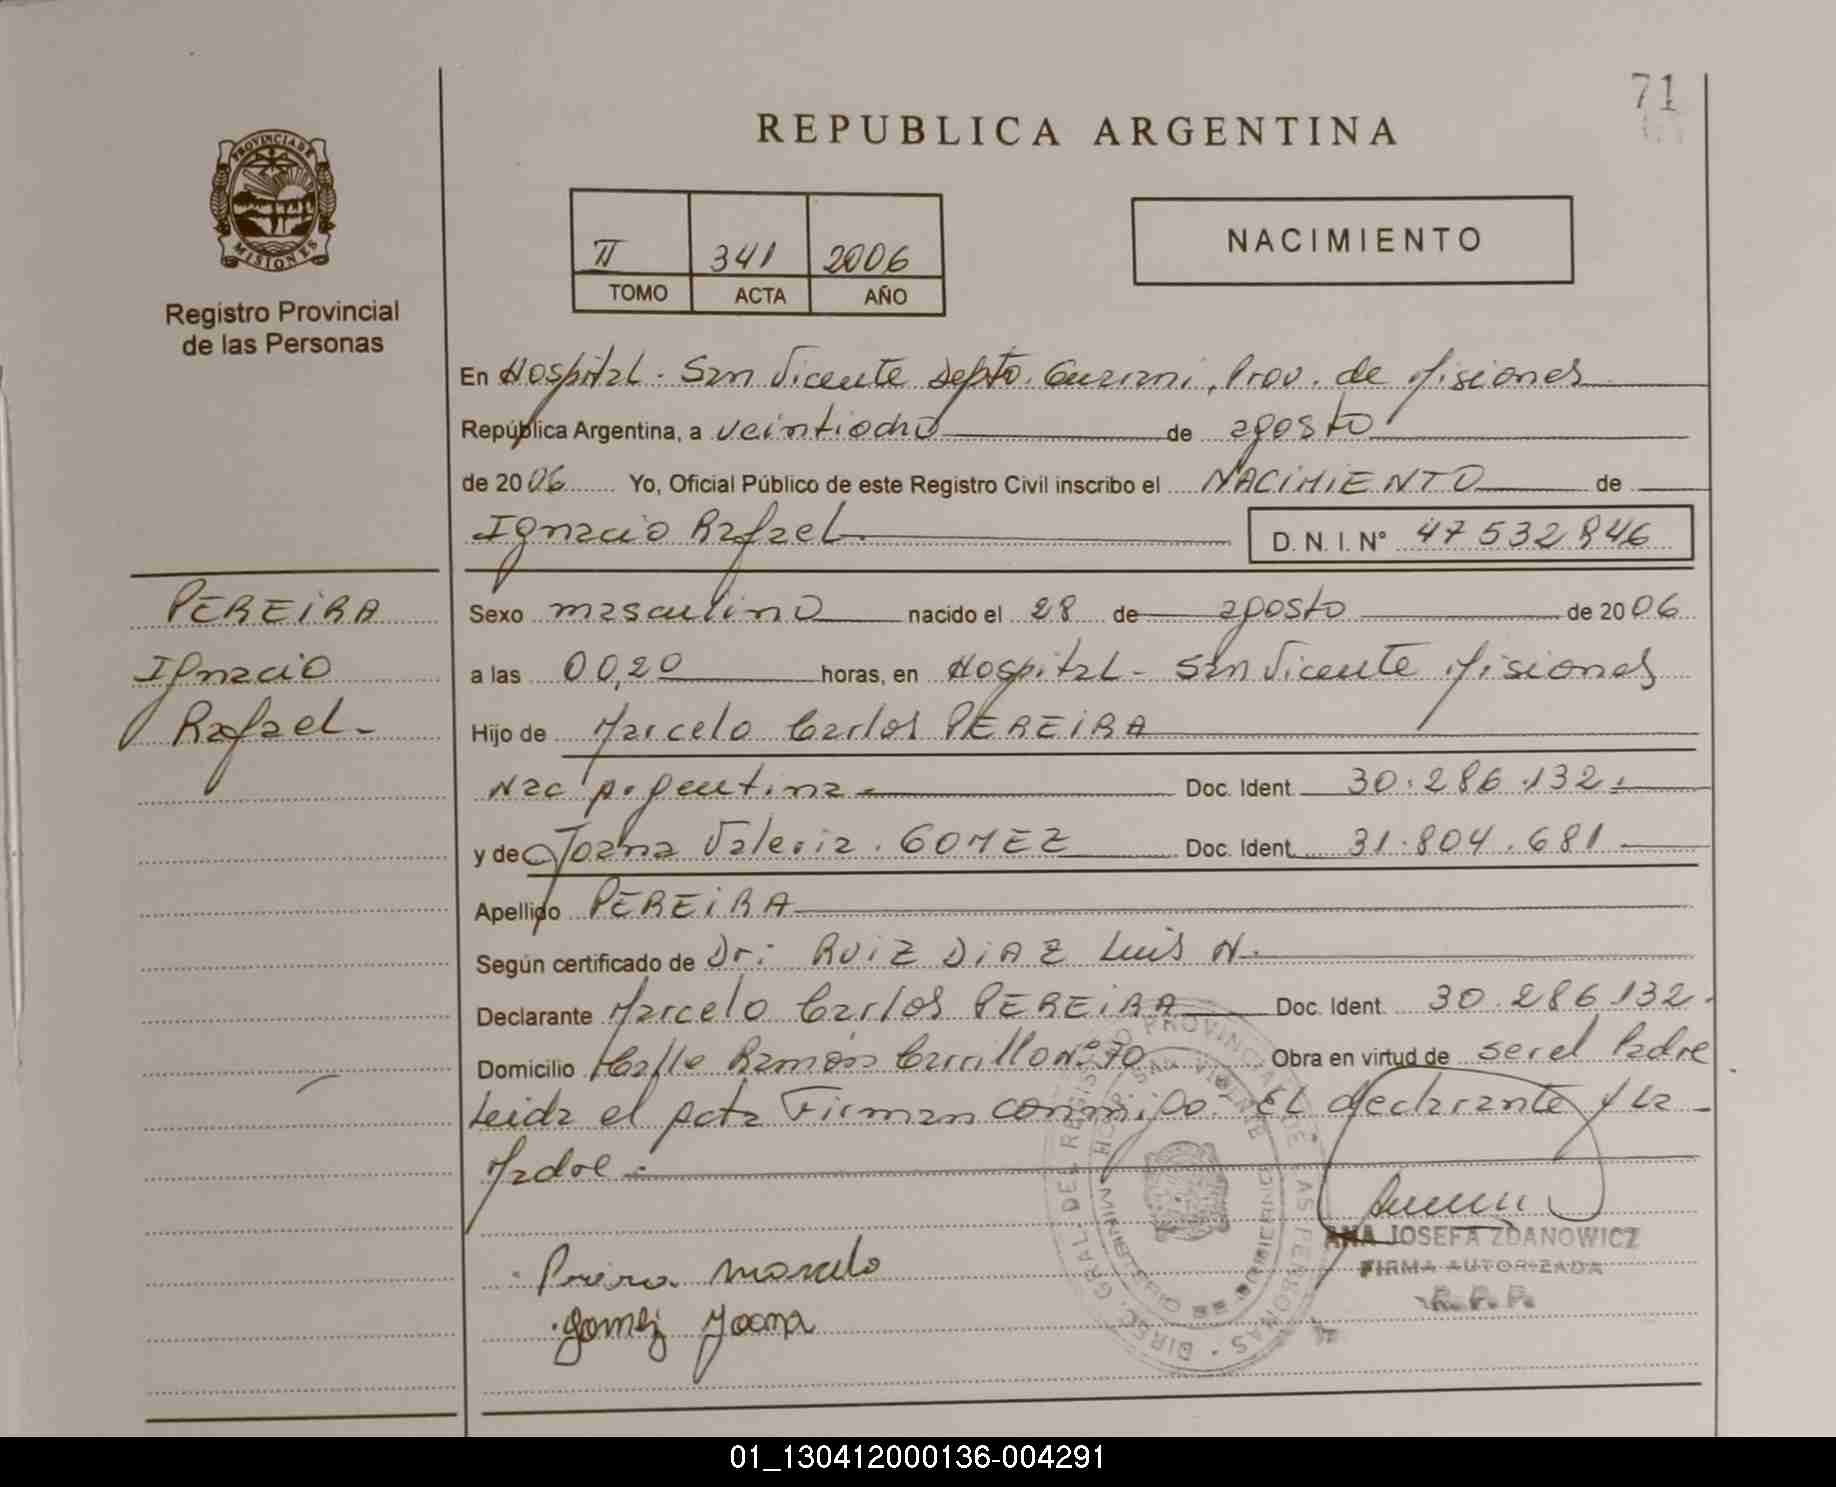 71
REPUBLICA ARGENTINA
PROVINCIA DE MISIONES
Registro Provincial
de las Personas
II 341 2006
TOMO ACTA AÑO
NACIMIENTO
En Hospital - San Vicente Depto. Guarani, Prov. de Misiones
República Argentina, a veintiocho de agosto
de 2006 Yo, Oficial Público de este Registro Civil inscribo el NACIMIENTO de
Ignacio Rafael D. N. I. N° 47 532 846
PEREIRA
Ignacio
Rafael-
Sexo masculino nacido el 28 de agosto de 2006
a las 00,20 horas, en Hospital - San Vicente Misiones
Hijo de Marcelo Carlos PEREIRA
Nac Argentina - Doc. Ident. 30.286.132.
y de Joana Valeria. GOMEZ Doc. Ident. 31.804.681
Apellido PEREIRA
Según certificado de Dr: RUIZ DIAZ Luis N.
Declarante Marcelo Carlos PEREIRA Doc. Ident. 30.286.132.
Domicilio Calle Ramón Carrillo N° 70 Obra en virtud de ser el Padre
Leida el acta Firman conmigo. El declarante y la
Madre -
Pereira Marcelo
Gomez Joana
ANA JOSEFA ZDANOWICZ
FIRMA AUTORIZADA
R. P. P.
DIREC. GRAL. DEL REGISTRO PROVINCIAL DE LAS PERSONAS
01_130412000136-004291